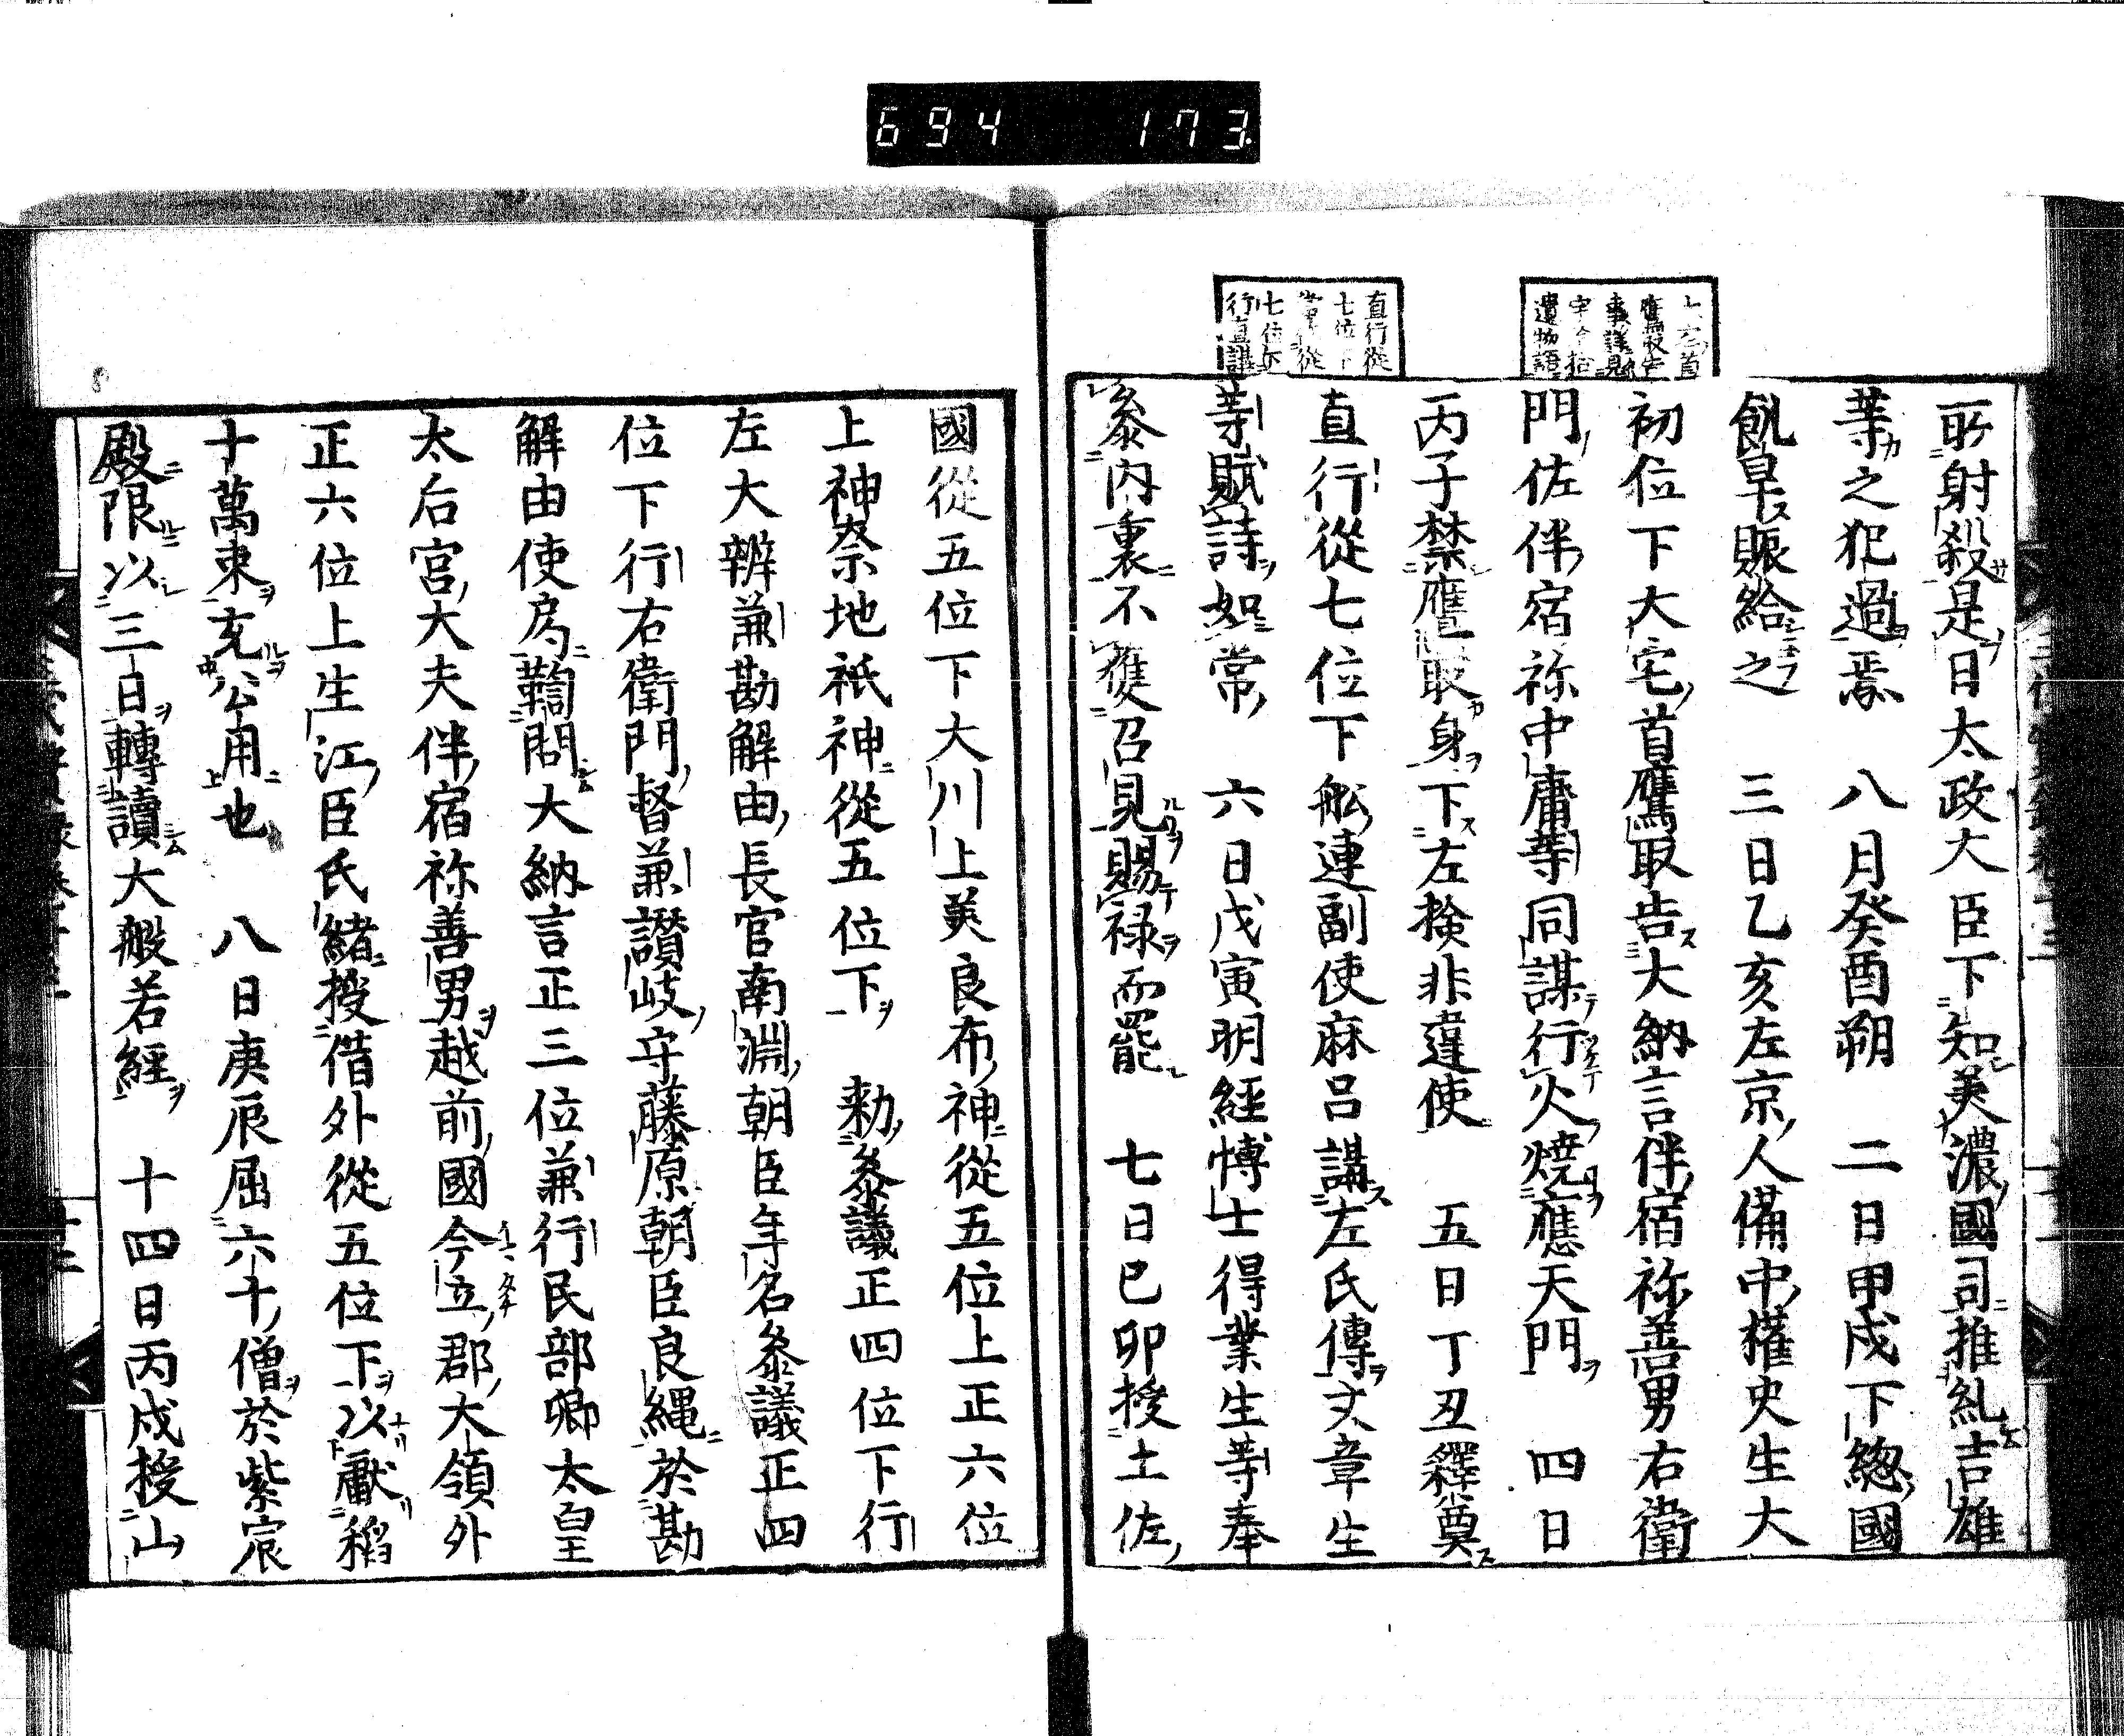 694 173
大宅首
鷹取告
事詳見
宇治拾
遺物語
直行從
七位下
當作從
七位下
行直講
所射殺是日太政大臣下知美濃國司推糺吉雄
等之犯過焉 八月癸酉朔 二日甲戌下緫國
飢旱賑給之 三日乙亥左京人備中權史生大
初位下大宅首鷹取告大納言伴宿祢善男右衛
門佐伴宿祢中庸等同謀行火燒應天門 四日
丙子禁鷹取身下左檢非違使 五日丁丑釋奠
直行從七位下舩連副使麻呂講左氏傳文章生
等賦詩如常 六日戊寅明經博士得業生等奉
參內裏不獲召見賜祿而罷 七日己卯授土佐
國從五位下大川上美良布神從五位上正六位
上神奈地祇神從五位下 勑參議正四位下行
左大辨兼勘解由長官南淵朝臣年名參議正四
位下行右衛門督兼讃岐守藤原朝臣良繩於勘
解由使局鞫問大納言正三位兼行民部卿太皇
太后宮大夫伴宿祢善男越前國今立郡大領外
正六位上生江臣氏緖授借外從五位下以獻稻
十萬束充公用也 八日庚辰屈六十僧於紫宸
殿限以三日轉讀大般若經 十四日丙戌授山